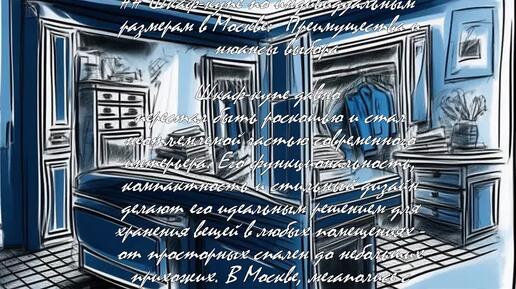 ## Шкаф-купе по индивидуальным
размерам в Москве: Преимущества и
нюансы выбора
Шкаф-купе давно
перестал быть роскошью и стал
неотъемлемой частью современного
интерьера. Его функциональность,
компактность и стильный дизайн
делают его идеальным решением для
хранения вещей в любых помещениях -
от просторных спален до небольших
прихожих. В Москве, мегаполисе с